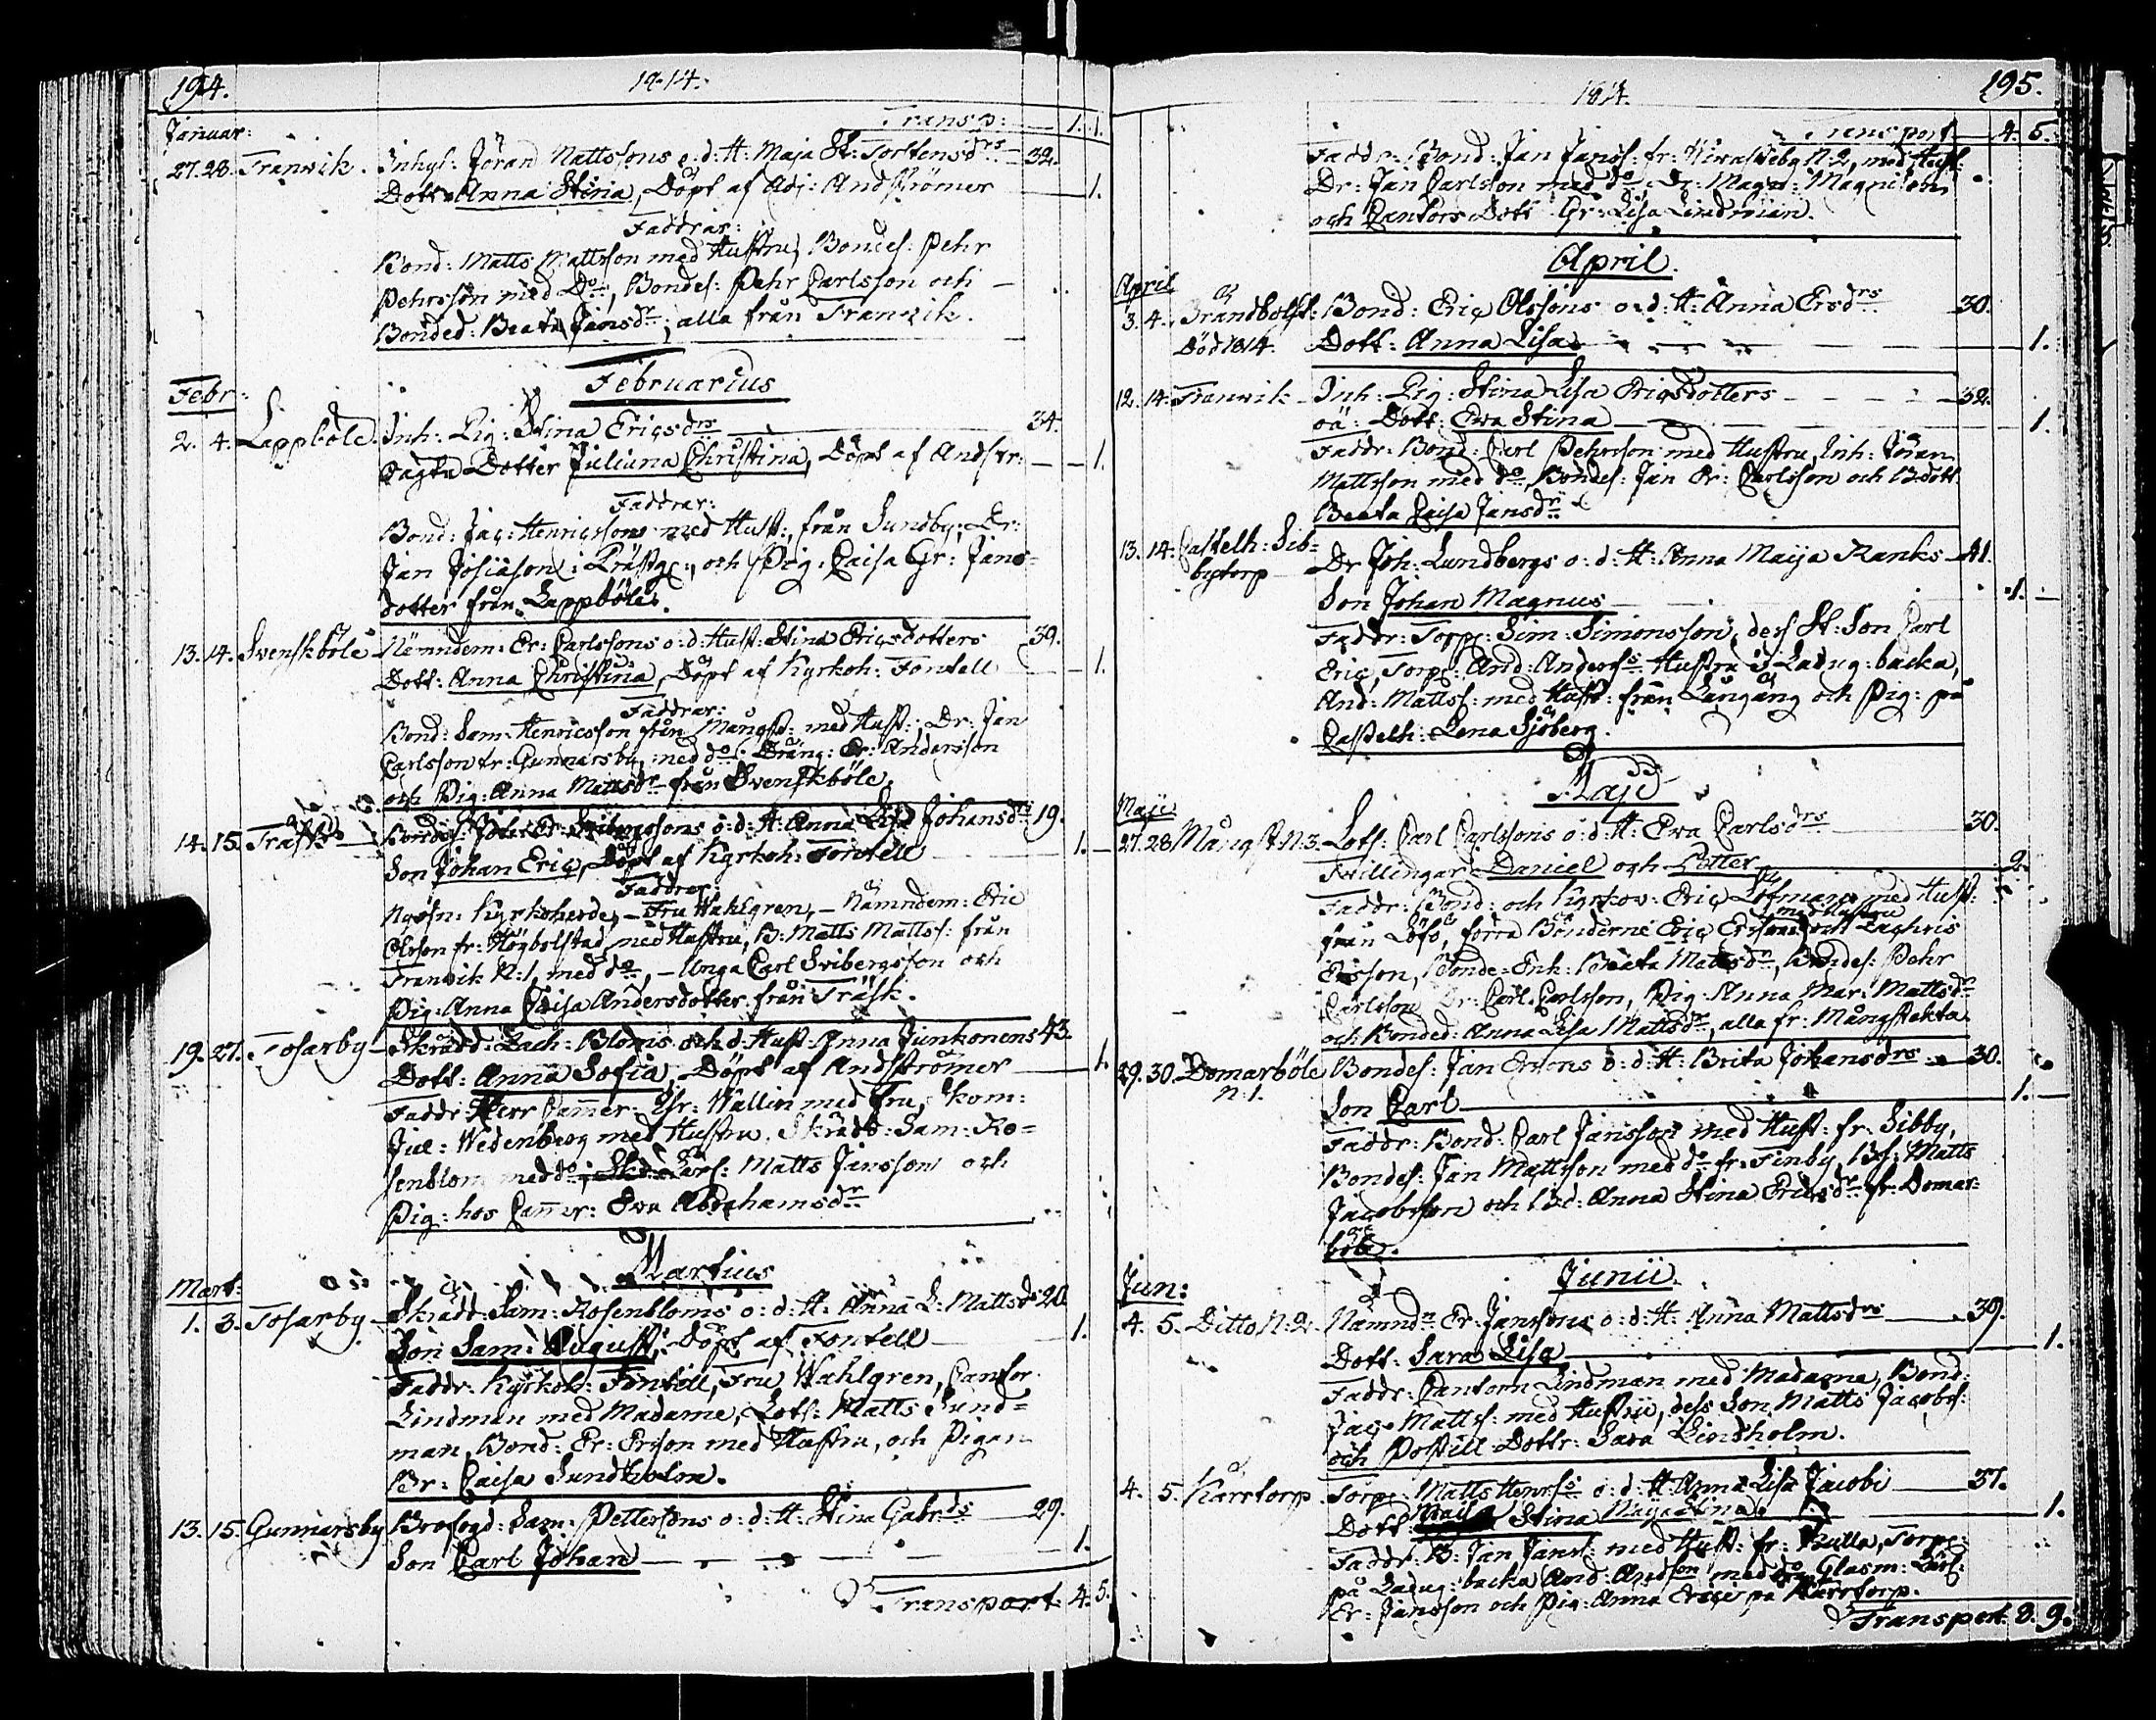 194.
1814.
Transp: 1. 1.
Januar:
27. 28. Tranvik. Inhys: Jöran Mattssons o: d: H: Maja St: Torstensdrs 32.
Dott: Anna Stina, Döpt af Adj: Andströmer 1.
Faddrar:
Bond: Matts Mattsson med Hustru, Bondes: Pehr
Pehrsson med Do, Bondes: Pehr Carlsson och
Bonded: Beata Jansdr; alla från Tranvik.
Februarius
Febr:
2. 4. Lappböle. Inh: Pig: Stina Ericsdrs 34.
Dotter Juliana Christina, Döpt af Andstr: 1.
Faddrar:
Bond: Jac: Henricsson med Hust:, från Sundby; Dr:
Jan Josiason i Prästg:, och Pig: Caisa Gr: Jans=
dotter från Lappböle.
13. 14. Svenskböle Nämndem: Er: Carlssons o: d: Hust: Stina Ericsdotters 39.
Dott: Anna Christina, Döpt af Kyrkoh: Fontell 1.
Faddrar:
Bond: Sam: Henricsson från Mångst: med Hust: Dr: Jan
Carlsson fr: Gunnarsby, med do. Dräng: Er: Andersson
och Pig: Anna Mattsdr från Svenskböle.
14. 15. Träsk Bondes: Er: Svibergssons o: d: H: Anna Lisa Johansdrs 19.
Son Johan Eric, Döpt af Kyrkoh: Fontell 1.
Faddrar:
Kyrkoherde, – Fru Wahlgren, – Nämndem: Eric
Olsson fr: Högbolstad med Hustru, B: Matts Mattss: från
Tranvik N:1, med do, – Unga Carl Svibergsson och
Pig: Anna Caisa Andersdotter från Träsk.
19. 27. Tosarby Skrädd: Zach: Bloms och d: Hust: Anna Junkonens 43.
Dott: Anna Sofia, Döpt af Andströmer 1.
Faddr: Herr Camer: Wallin med Fru, Skom:
Jul: Wedenberg med Hustru, Skrädd: Sam: Ro=
senblom med do, Matts Jansson och
Pig: hos Camer: Eva Abrahamsdr
Martius
Mart:
1. 3. Tosarby Skrädd: Sam: Rosenbloms o: d: H: Anna L: Mattsds 20
Son Sam: August, Döpt af Fontell 1.
Faddr: Kyrkoh: Fontell, Fru Wahlgren, Cantor
Lindman med Madame, Lots: Matts Sund=
man, Bond: Er: Ersson med Hustru, och Pigan
Br: Caisa Sundholm.
13. 15. Gunnarsby Brofogd: Sam: Petterssons o: d: H: Stina Gabrds 29.
Son Carl Johan 1.
Transport 4. 5.
195.
1814.
Transport 4. 5.
Faddr: Bond: Jan Janss: fr: N:2, med Hust:
Dr: Jan Carlsson med do, Dr: Magn: Magnisson
och Cantors Dott Gr: Lisa Lindman.
April.
April
3. 4. Brändbolst: Bond: Eric Olssons o: d: H: Anna Ersdrs 30.
Död 1814. Dott: Anna Lisa 1.
12. 14. Tranvik Inh: Pig: Stina Lisa Ericsdotters 32.
oä: Dott: Eva Stina 1.
Faddr: Bond: Carl Pehrsson med Hustru, Inh: Jöran
Mattsson med do, Bondes: Jan Er: Carlsson och Bdott
Beata Caisa Jansdr
13. 14. Castelh: Sib= Dr Joh: Lundbergs o: d: H: Anna Maija Ranks 41.
bytorp
Son Johan Magnus 1.
Faddr: Torp: Sim: Simonsson, dess St: Son Carl
Eric, Torp: And: Anderss Hustru i Ladug: backa,
And: Mattss: med Hust: från Långäng och Pig: på
Castelh: Lena Sjöberg.
Maji
Maji
27. 28 Mångst N:3. Lots: Carl Carlssons o: d: H: Eva Carlsdrs 30.
Tvillingar Daniel och Petter 2.
Faddr: Bond: och Kyrkov: Eric Löfman med Hust:
med Hustru
från Löfö, förra Bönderne Eric Ersson och Zachris
Ersson, Bonde-Enk: Beata Mattsdr, Bondes: Pehr
Carlsson Dr: Carl Carlsson, Pig: Anna Mar: Mattsdr
och Bonded: Anna Lisa Mattsdr, alla fr: Mångstekta
29. 30. Domarböle Bondes: Jan Erssons o: d: H: Brita Johansdrs 30.
N:1.
Son Carl 1.
Faddr: Bond: Carl Jansson med Hust: fr: Sibby,
Bondes: Jan Mattsson med do fr: Finby, Bs: Matts
Jacobsson och Bd: Anna Stina Ericsdr fr: Domar=
böle.
Junii
Jun:
4. 5. Ditto N:2. Nämndn Er: Janssons o: d: H: Anna Mattsdrs 39.
Dott: Sara Lisa 1.
Faddr: Cantorn Lindman med Madame, Bond:
Jac: Mattss: med Hustru, dess Son Matts Jacobss:
och Postill Dottr: Sara Lindholm.
4. 5. Kärrtorp. Torp: Matts Henrss o: d: H: Anna Lisa Jacobi 37.
Dott: Maja Stina Maija Stina 1.
Faddr: B: Jan Janss: med Hust: fr: Bulla, Torp:
på Ladug: backa And: Andson med do, Glasm: Lärl:
Er: Jansson och Pig: Anna Erici på Kärrtorp.
Transport 8. 9.